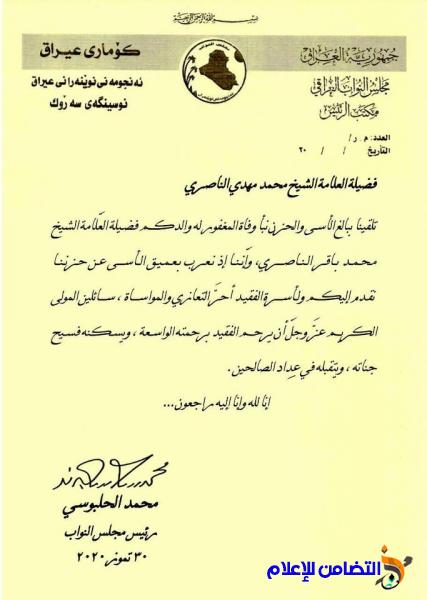 بسم الله الرحمن الرحيم
جمهورية العراق
مجلس النواب العراقي
مكتب الرئيس
كۆماری عیراق
ئه نجومه نی نوێنه رانی عیراق
نوسینگه‌ی سه رۆك
العدد: م . ر /
التاريخ / / ٢٠
فضيلة العلامة الشيخ محمد مهدي الناصري
تلقينا ببالغ الأسى والحزن نبأ وفاة المغفور له والدكم فضيلة العلّامة الشيخ
محمد باقر الناصري، وإنّنا إذ نعرب بعميق الأسى عن حزننا
نقدم إليكم ولأسرة الفقيد أحرَّ التعازي والمواساة، سائلين المولى
الكريم عزَّ وجلَّ أن يرحم الفقيد برحمته الواسعة، ويسكنه فسيح
جناته، ويتقبله في عداد الصالحين.
إنا لله وإنا إليه راجعون...
محمد الحلبوسي
رئيس مجلس النواب
٣٠ تموز ٢٠٢٠
التضامن للإعلام